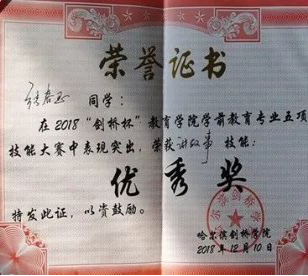 荣誉证书
张春玉 同学：
在2018“剑桥杯”教育学院学前教育专业五项
技能大赛中表现突出，荣获讲故事技能：
优秀奖
特发此证，以资鼓励。
哈尔滨剑桥学院
2018年12月10日